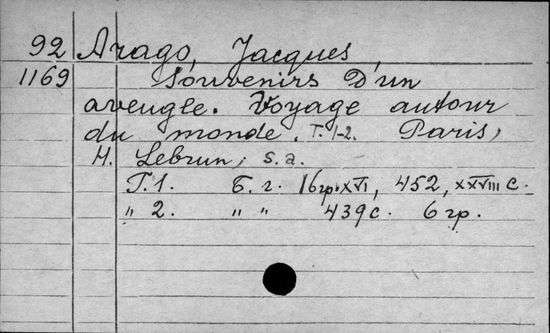 92 Arago, Jacques,
1169 Souvenirs D'un
aveugle. Voyage autour
du monde. T. 1-2. Paris,
H. Lebrun, s. a.
T. 1. Б. г. 16 гр. XVI, 452, XXVIII с.
" 2. " " 439 с. 6 гр.